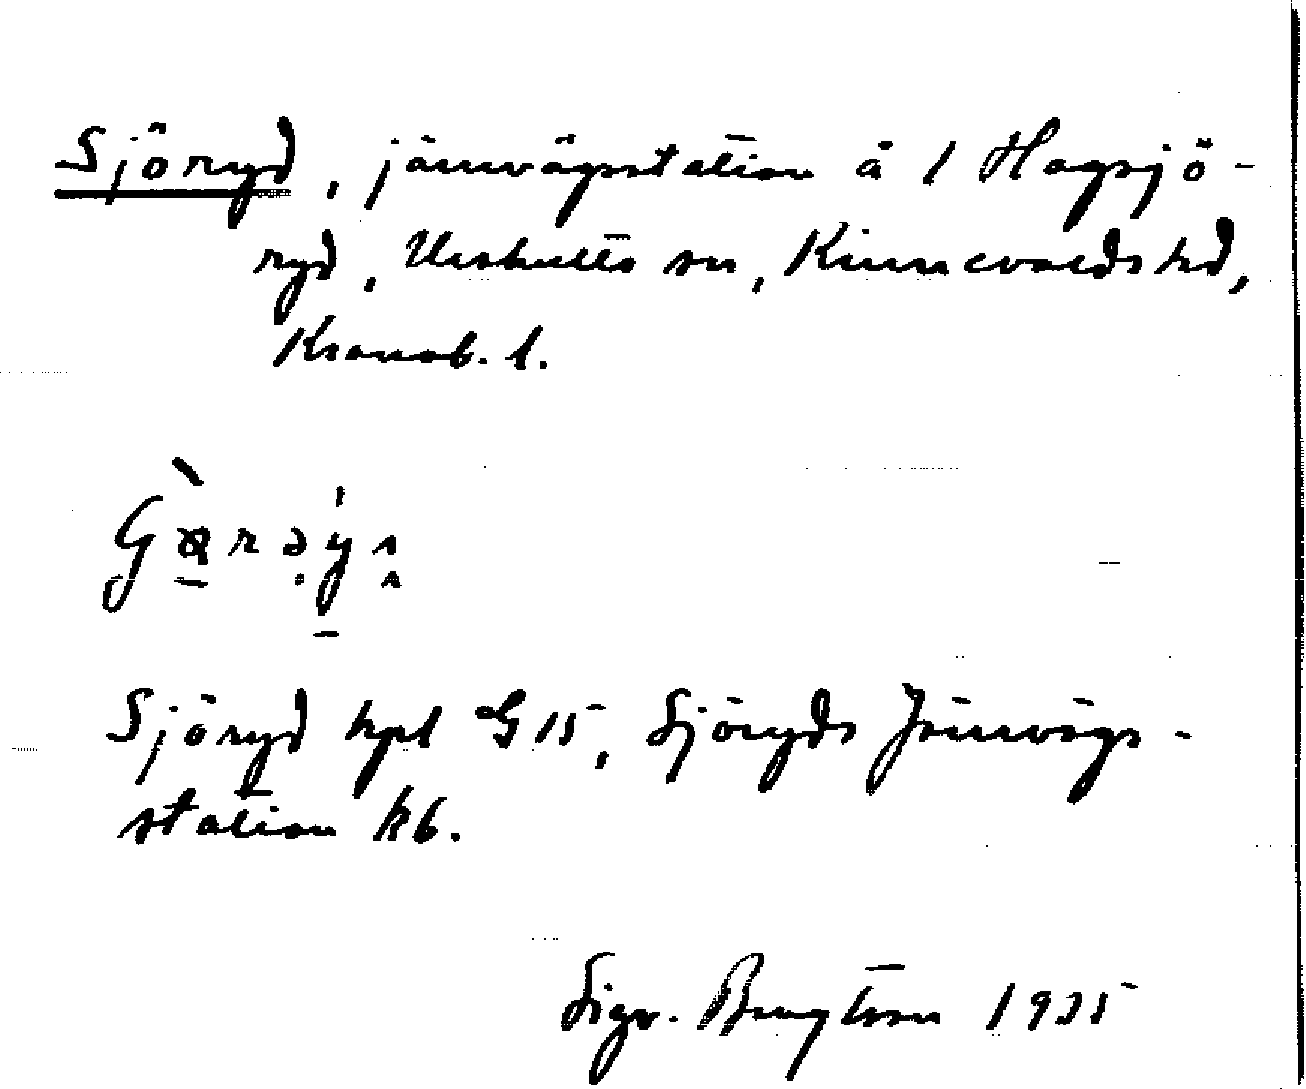 Sjöryd, järnvägsstation å 1 Hagsjö-
ryd, Urshults sn, Kinnevalds hd,
Kronob. l.
Sjöryd hpl G 15, Sjöryds Järnvägs-
station kb.
Sigv. 1935